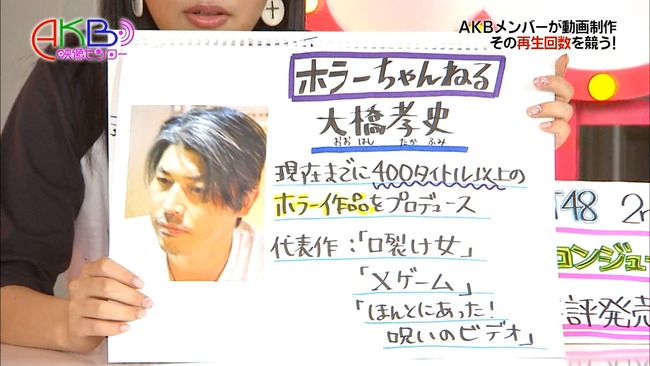 AKB
映像センター
AKBメンバーが動画制作
その再生回数を競う!
ホラーちゃんねる
大橋孝史
おおはし たかふみ
現在までに400タイトル以上の
ホラー作品をプロデュース
代表作:「口裂け女」
「Xゲーム」
「ほんとにあった!
呪いのビデオ」
T48 2n
コンジュー
評発売